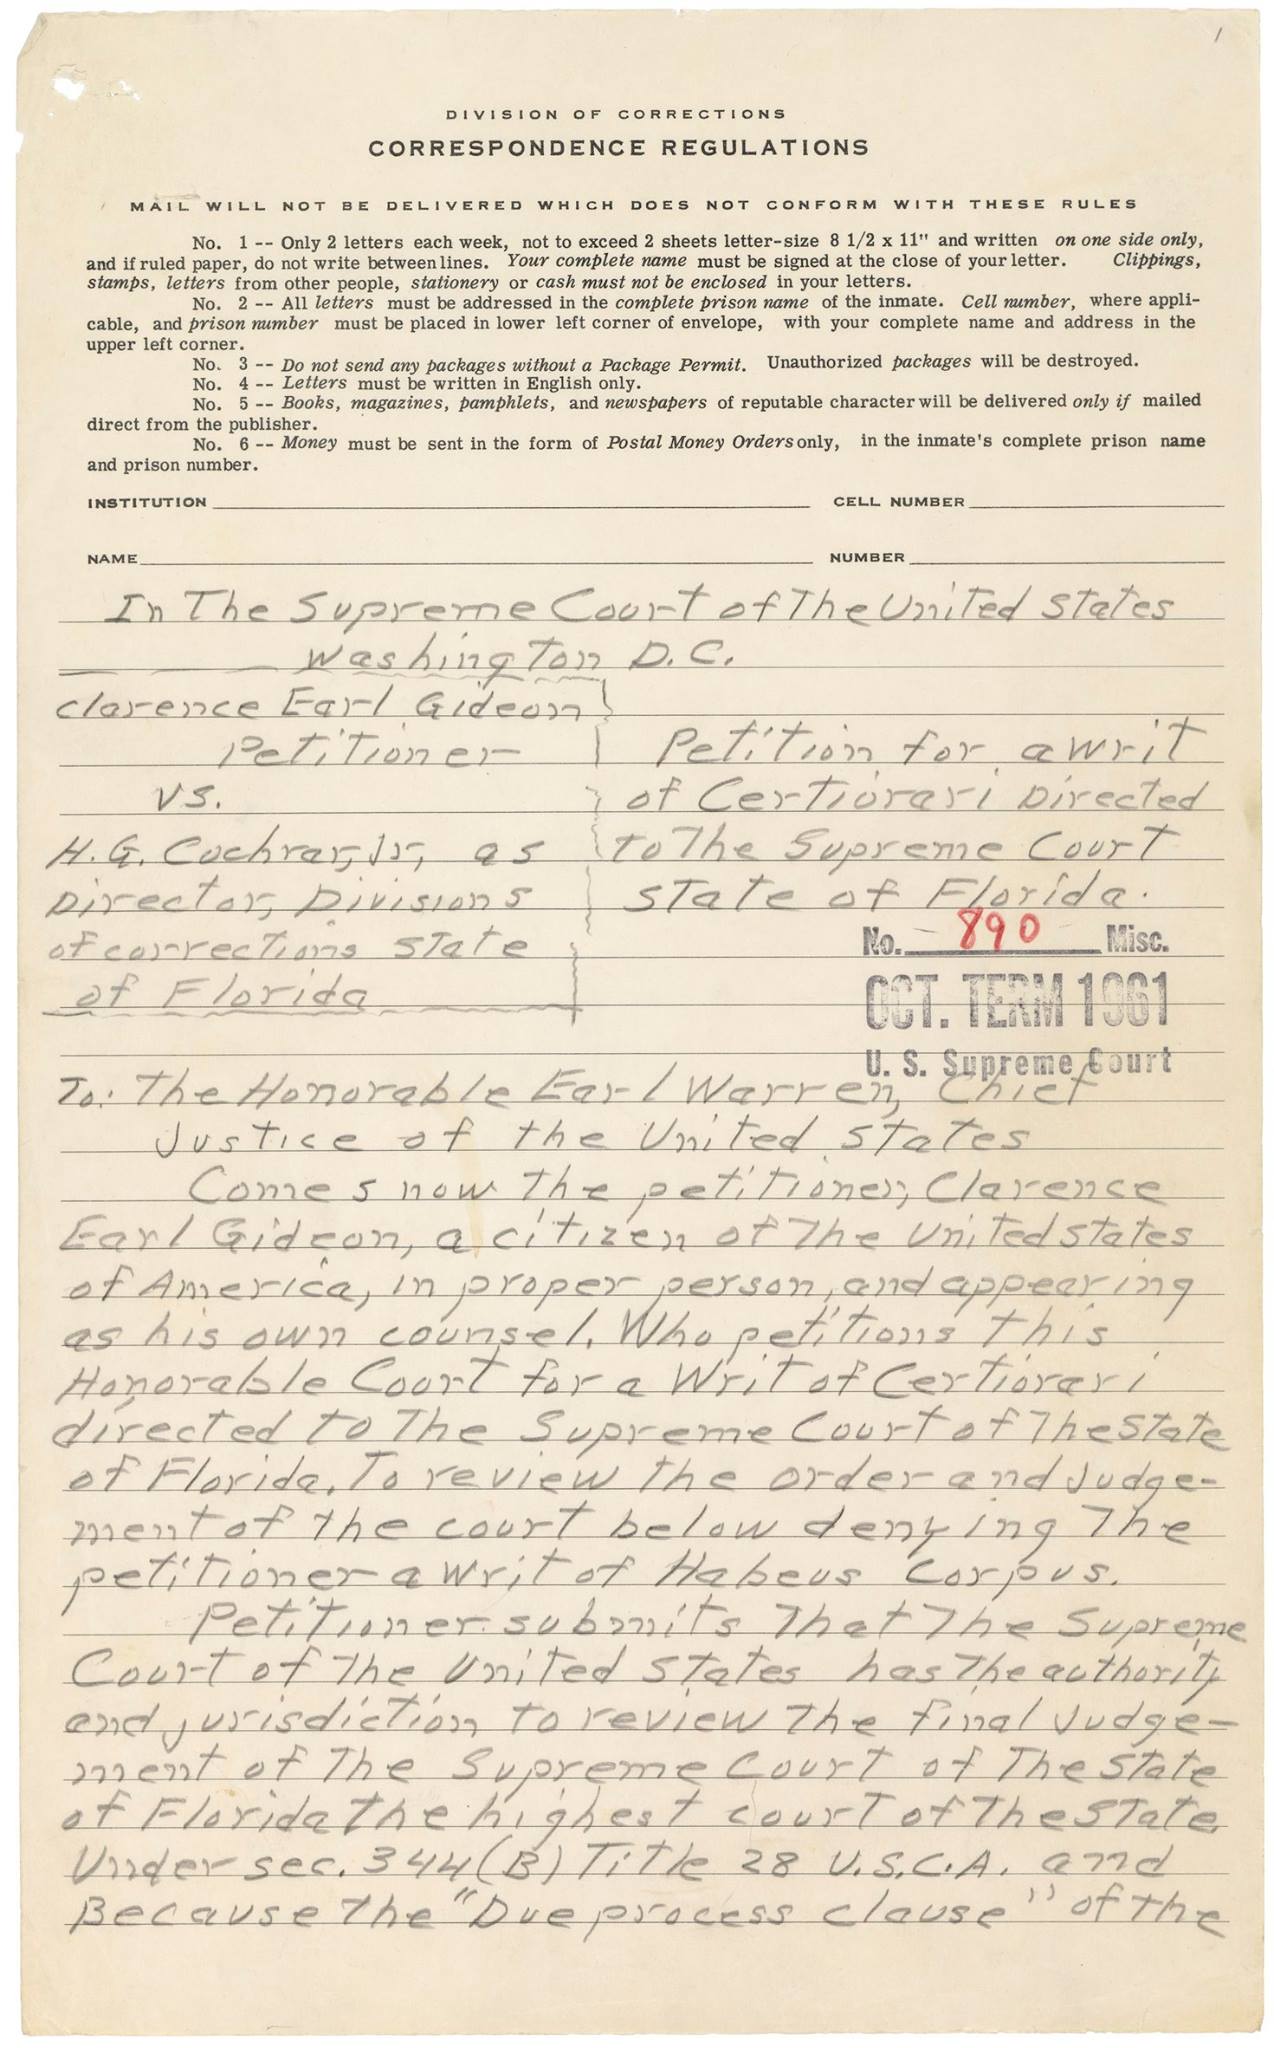 1
DIVISION OF CORRECTIONS
CORRESPONDENCE REGULATIONS
MAIL WILL NOT BE DELIVERED WHICH DOES NOT CONFORM WITH THESE RULES
No. 1 -- Only 2 letters each week, not to exceed 2 sheets letter-size 8 1/2 x 11" and written on one side only,
and if ruled paper, do not write between lines. Your complete name must be signed at the close of your letter. Clippings,
stamps, letters from other people, stationery or cash must not be enclosed in your letters.
No. 2 -- All letters must be addressed in the complete prison name of the inmate. Cell number, where appli-
cable, and prison number must be placed in lower left corner of envelope, with your complete name and address in the
upper left corner.
No. 3 -- Do not send any packages without a Package Permit. Unauthorized packages will be destroyed.
No. 4 -- Letters must be written in English only.
No. 5 -- Books, magazines, pamphlets, and newspapers of reputable character will be delivered only if mailed
direct from the publisher.
No. 6 -- Money must be sent in the form of Postal Money Orders only, in the inmate's complete prison name
and prison number.
INSTITUTION CELL NUMBER
NAME NUMBER
In The Supreme Court of The United States
Washington D.C.
Clarence Earl Gideon
Petitioner
vs.
H.G. Cochran, Jr, as
Director, Divisions
of corrections state
of Florida
Petition for a writ
of Certiorari Directed
to The Supreme Court
State of Florida.
No. 890 Misc.
OCT. TERM 1961
U. S. Supreme Court
To: The Honorable Earl Warren, Chief
Justice of the United States
Comes now the petitioner, Clarence
Earl Gideon, a citizen of The United states
of America, in proper person, and appearing
as his own counsel. Who petitions this
Honorable Court for a Writ of Certiorari
directed to The Supreme Court of The State
of Florida. To review the order and Judge-
ment of the court below denying The
petitioner a writ of Habeus Corpus.
Petitioner submits That The Supreme
Court of The United States has The authority
and jurisdiction to review the final Judge-
ment of The Supreme Court of The State
of Florida the highest court of The State
Under sec. 344(B) Title 28 U.S.C.A. and
Because the "Due process clause" of the